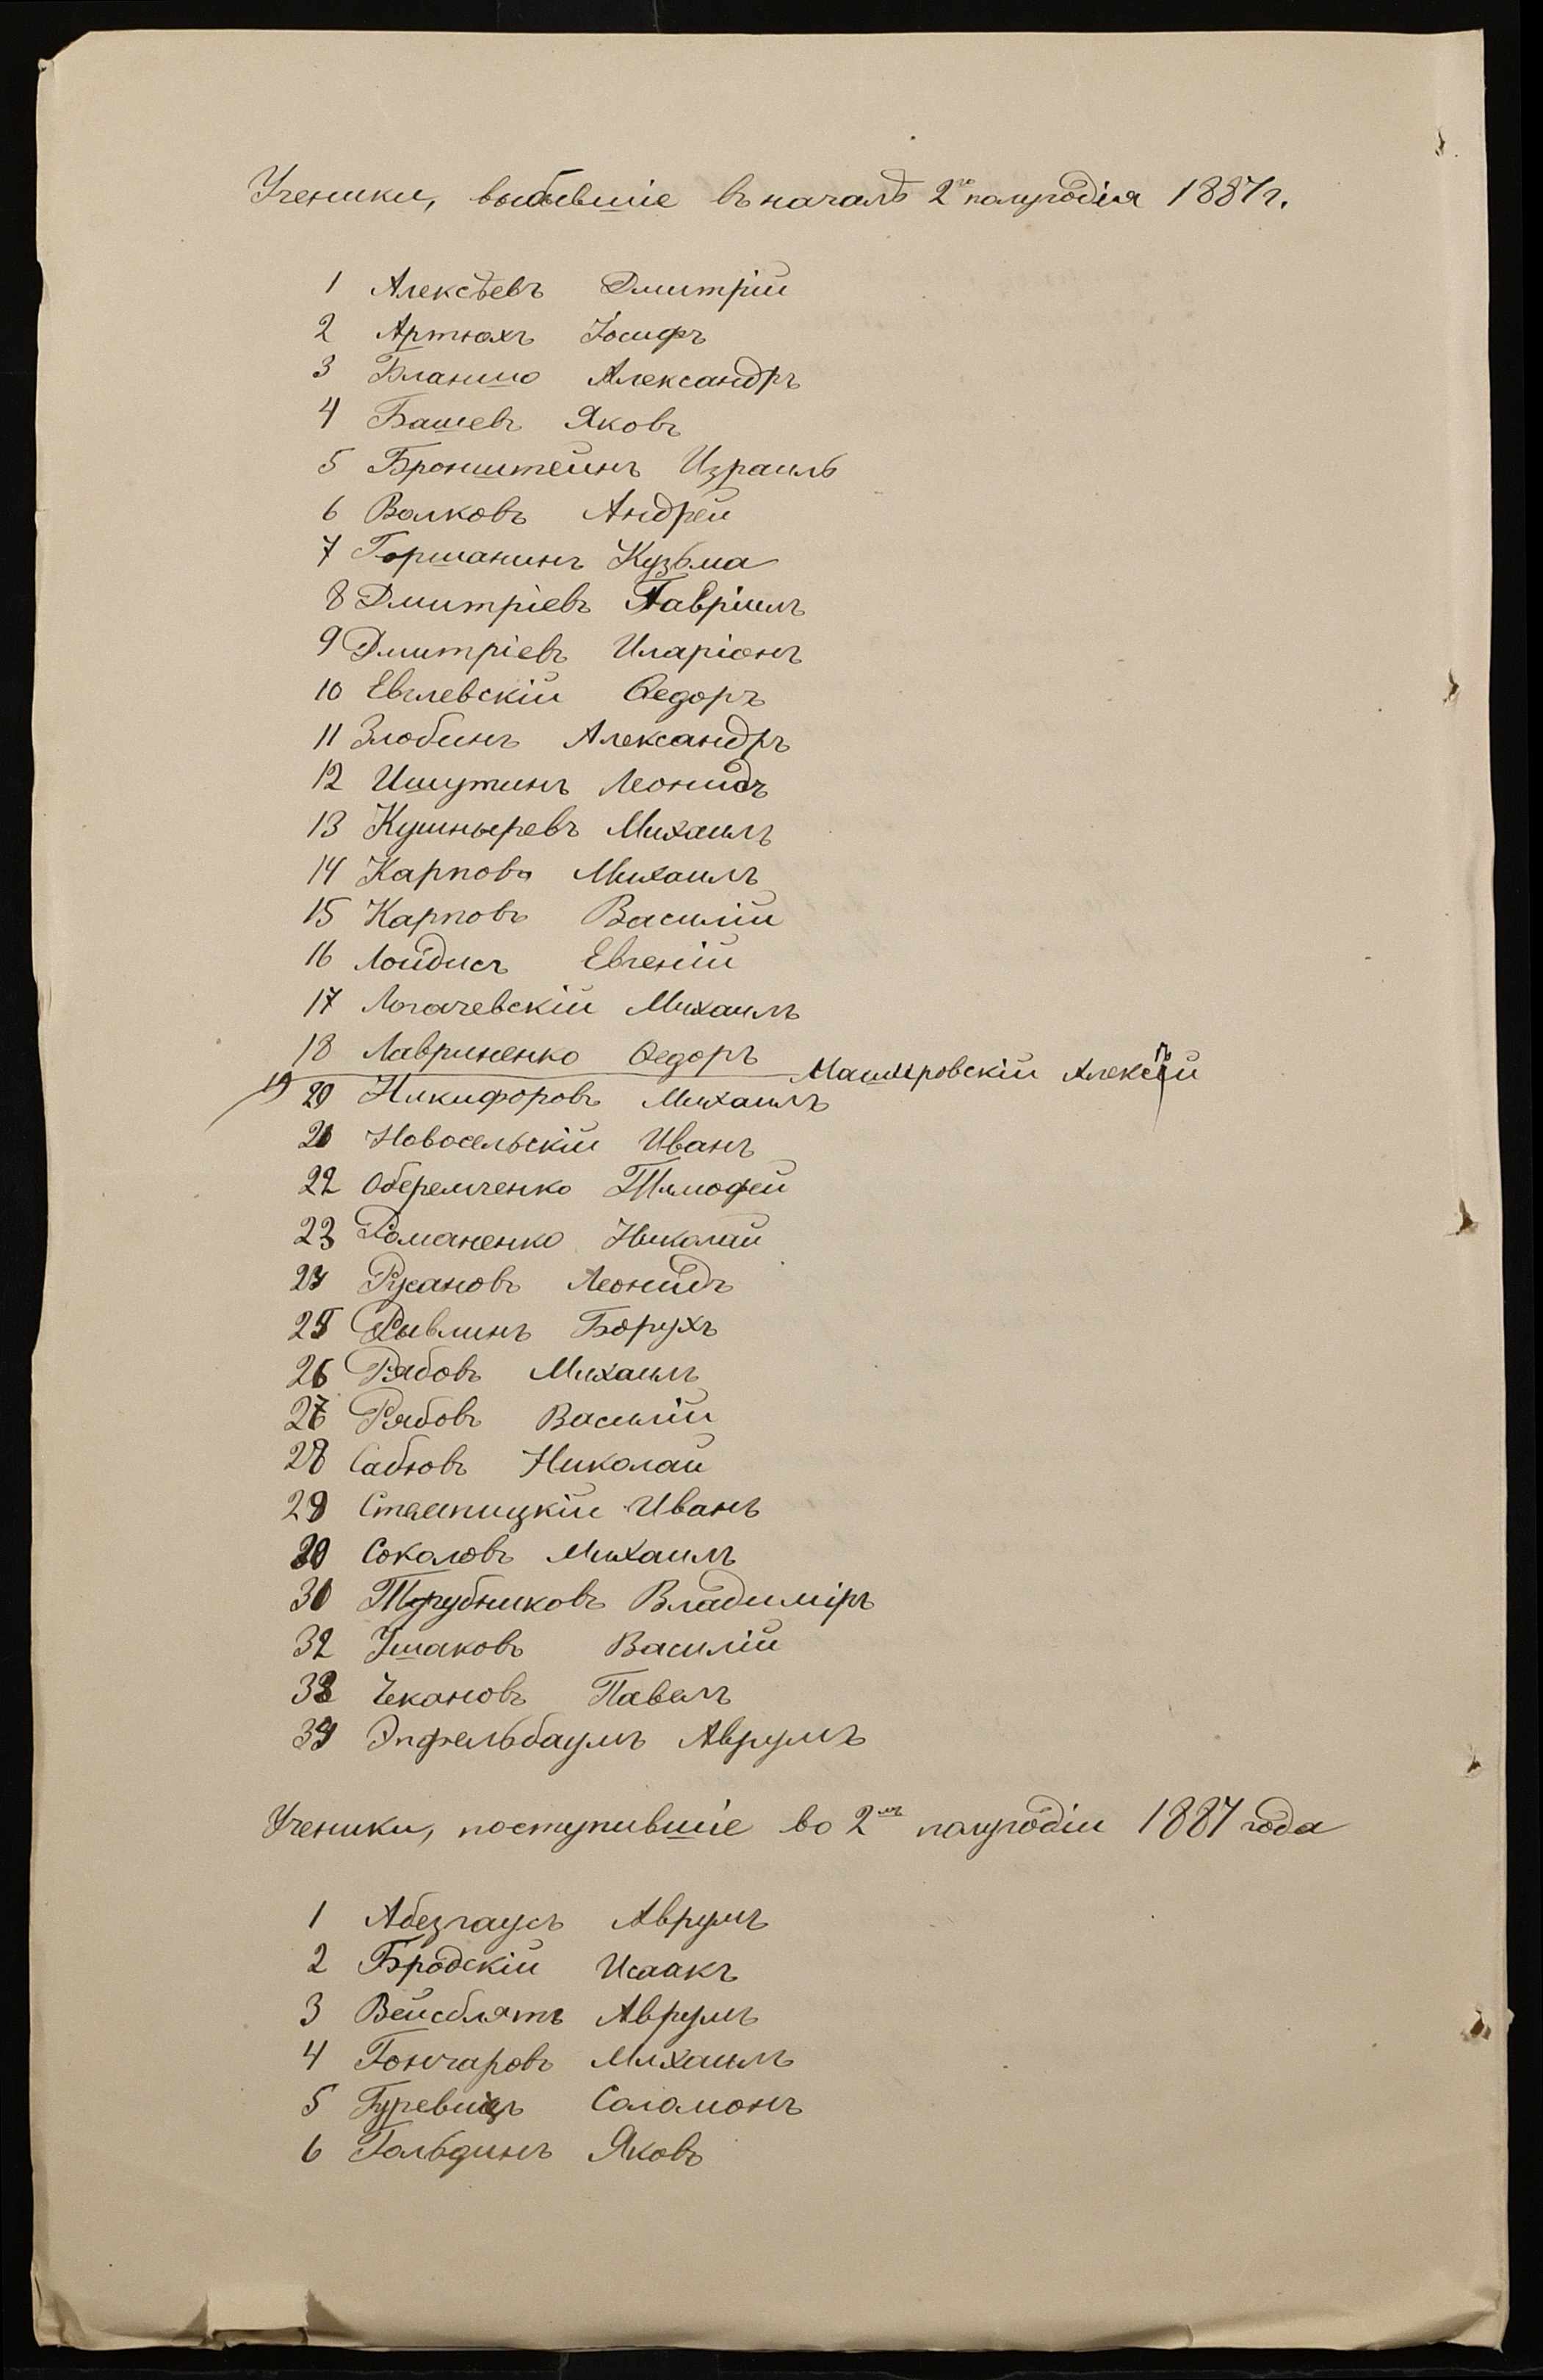 Ученики, выбывшіе въ началѣ 2го полугодія 1887 г.
1 Алексѣевъ Дмитрій
2 Артюхъ Іосифъ
3 Бланшо Александръ
4 Башевъ Яковъ
5 Бронштейнъ Израиль
6 Волковъ Андрей
7 Горшанинъ Кузьма
8 Дмитріевъ Гавріилъ
9 Дмитріевъ Иларіонъ
10 Евлевскій Ѳедоръ
11 Злобинъ Александръ
12 Ишутинъ Леонидъ
13 Кушныревъ Михаилъ
14 Карповъ Михаилъ
15 Карповъ Василій
16 Лойдисъ Евгеній
17 Логачевскій Михаилъ
18 Лавриненко Ѳедоръ
19 Машировскій Алексѣй
20 Никифоровъ Михаилъ
21 Новосельскій Иванъ
22 Оберемченко Тимофей
23 Романенко Николай
24 Русановъ Леонидъ
25 Рывлинъ Борухъ
26 Рябовъ Михаилъ
27 Рябовъ Василій
28 Сабновъ Николай
29 Иванъ
30 Соколовъ Михаилъ
31 Трубниковъ Владиміръ
32 Ушаковъ Василій
33 Чекановъ Павелъ
34 Эпфельбаумъ Аврумъ
Ученики, поступившіе во 2мъ полугодіи 1887 года
1 Абезгаусъ Аврумъ
2 Бродскій Исаакъ
3 Вейсблятъ Аврумъ
4 Гончаровъ Михаилъ
5 Гуревичъ Соломонъ
6 Гольдинъ Яковъ